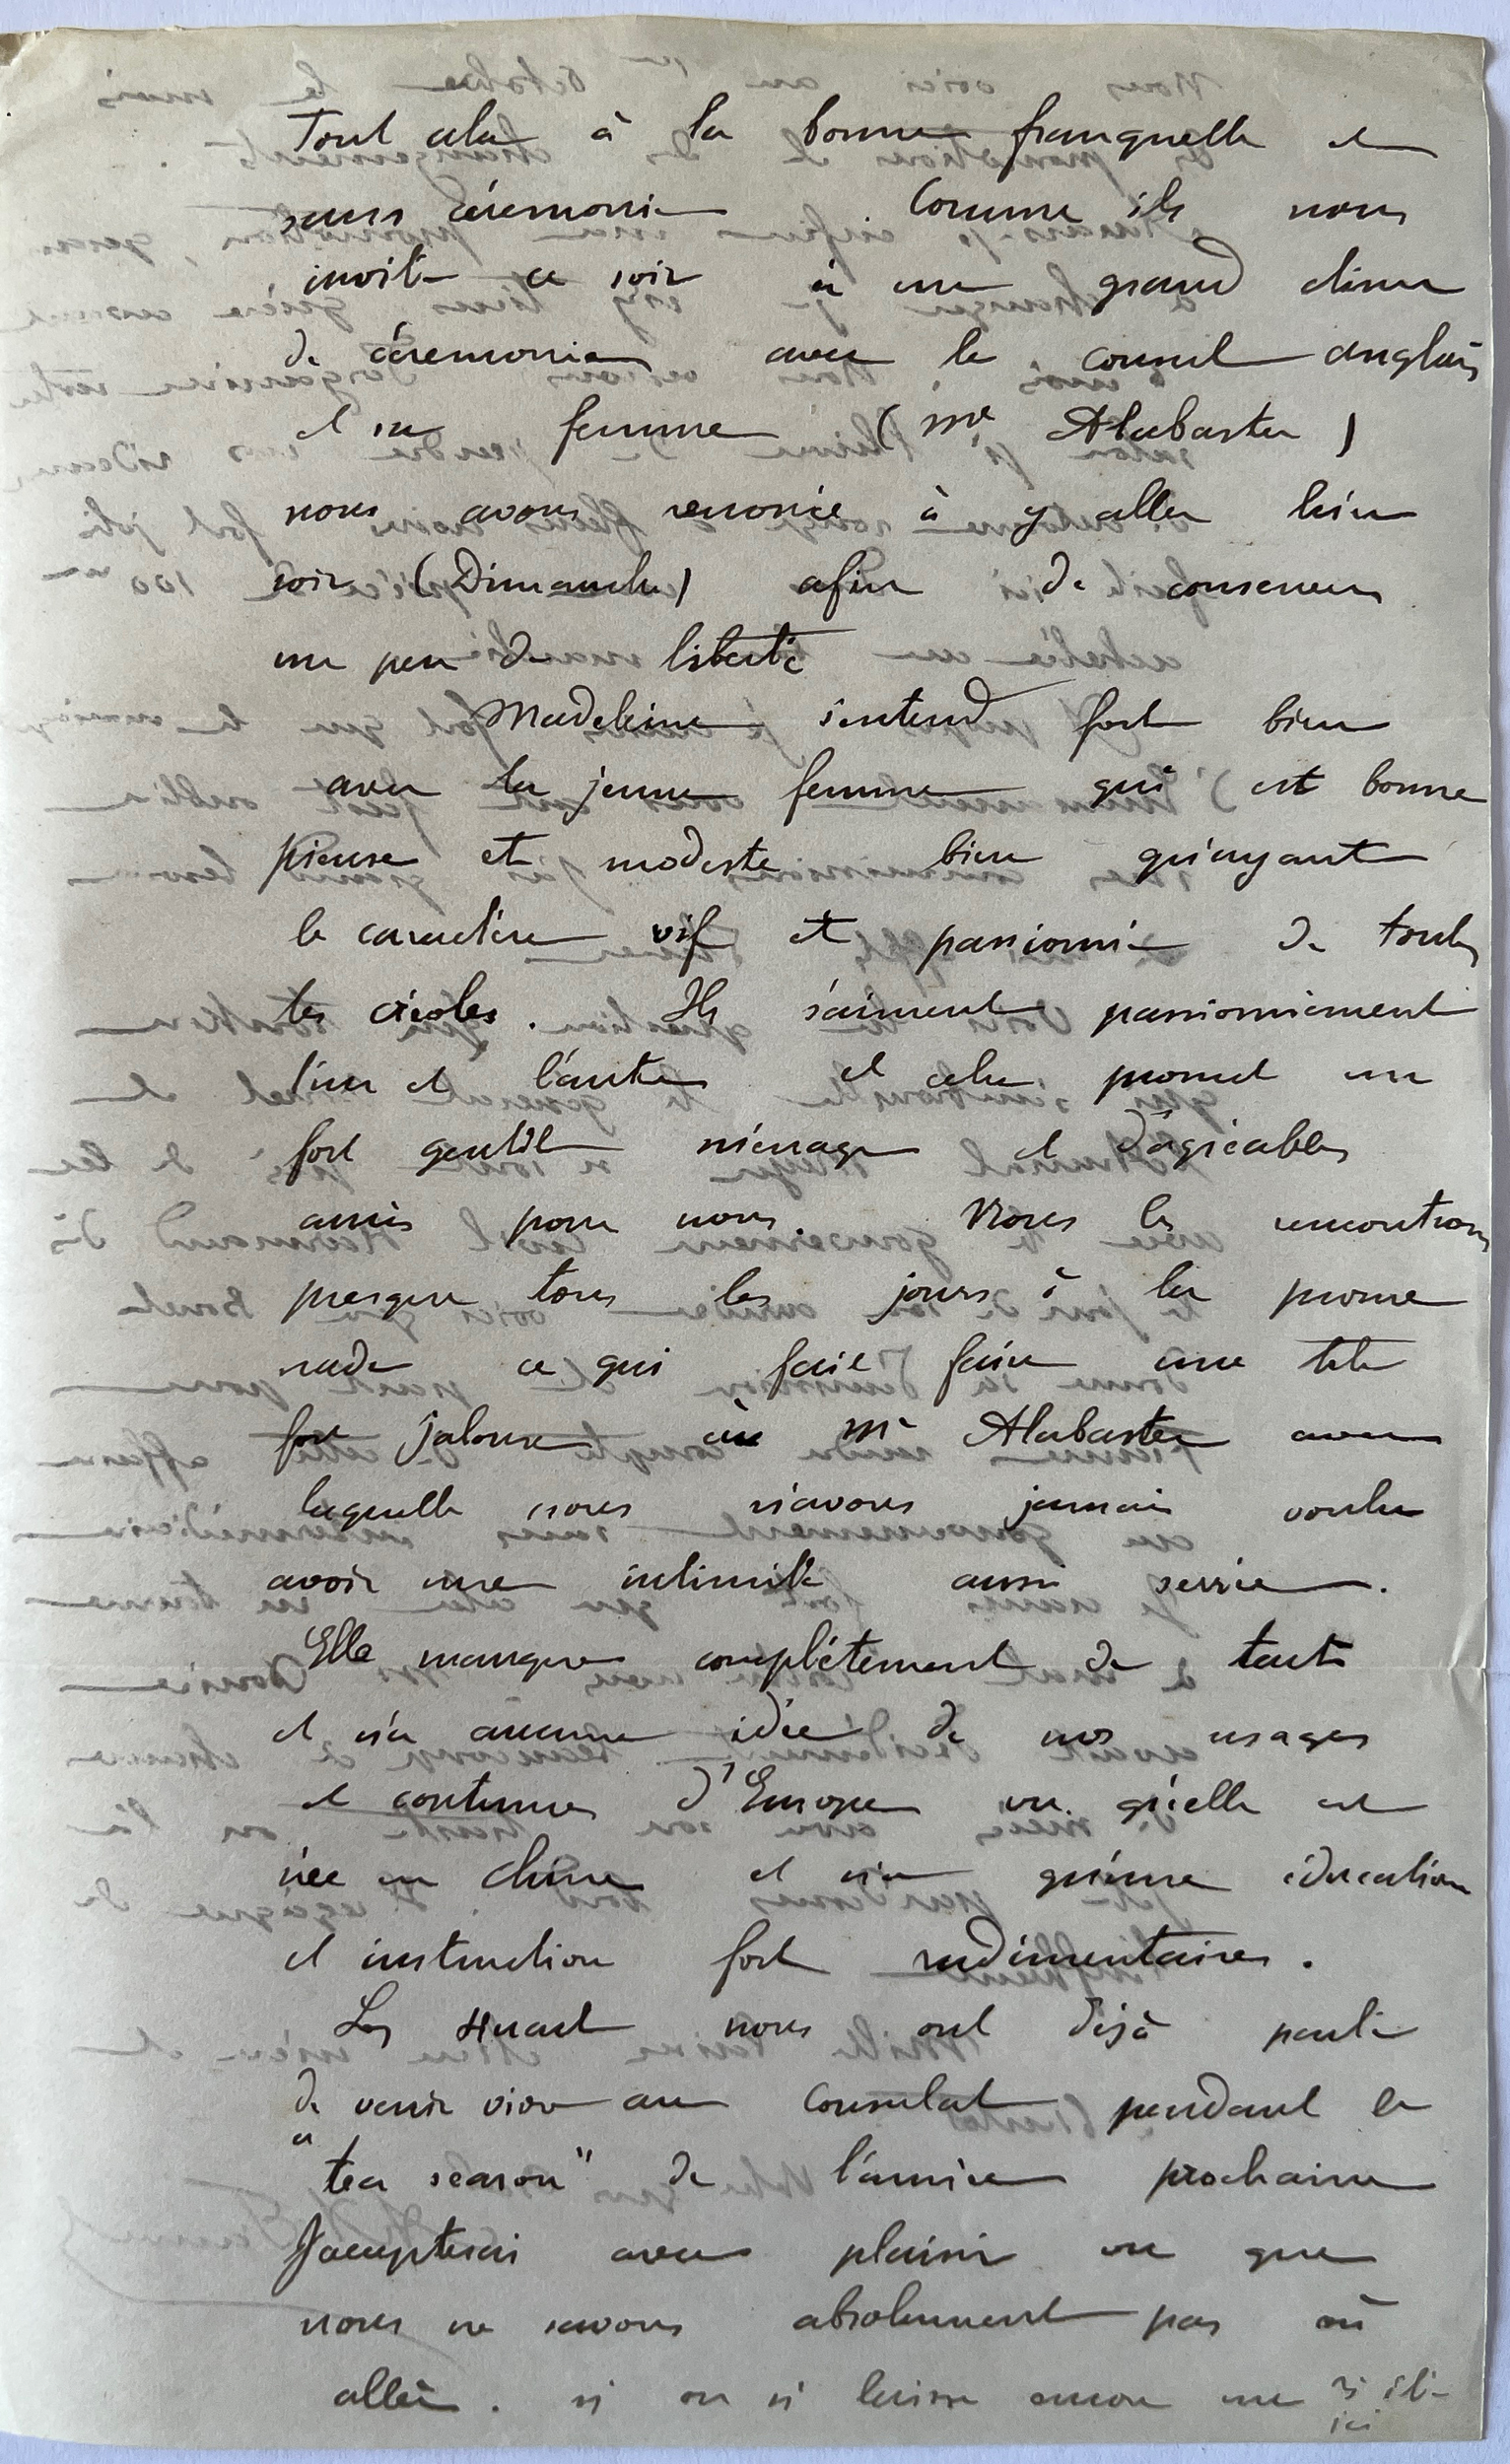 Tout cela à la bonne franquette et
sans cérémonie. Comme ils nous
invite ce soir à un grand diner
de cérémonie avec le consul anglais
et sa femme (Me Alabaster)
nous avons renoncé à y aller hier
soir (Dimanche) afin de conserver
un peu de liberté
Madeleine s'entend fort bien
avec la jeune femme qui est bonne
pieuse et modeste bien qu'ayant
le caractère vif et passionné de toutes
les créoles. Ils s'aiment passionnément
l'un et l'autre et cela promet un
fort gentil ménage et d'agréables
amis pour nous. Nous les rencontrons
presque tous les jours à la prome
nade ce qui fait faire une tete
fort jalouse à Me Alabaster avec
laquelle nous n'avons jamais voulu
avoir une intimité aussi serrée.
Elle manque complétement de tact
et n'a aucune idée de nos usages
et coutumes d'Europe vu qu'elle est
née en Chine et n'a qu'une éducation
et instruction fort rudimentaires.
Les Huart nous ont déjà parlé
de venir vivre au Consulat pendant la
"tea season" de l'année prochaine
J'accepterai avec plaisir vu que
nous ne savons absolument pas où
aller. si on n laisse encore un
ici